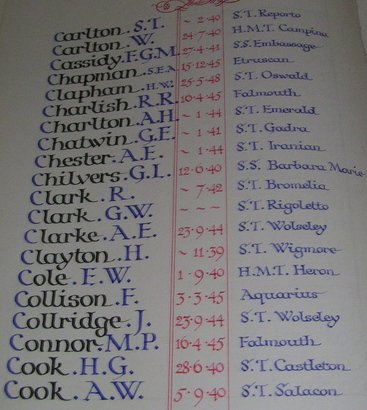 Carlton. S.T. ~ 2·40 S.T. Reporto
Carlton. W. 24·7·40 H.M.T. Campina
Cassidy. F.G.M. 27·4·41 S.S. Embassage
Chapman. S.E.A. 15·12·45 Etruscan
Clapham. H.W. 25·5·48 S.T. Oswald
Charlish. R.R. 16·4·45 Falmouth
Charlton. A.H. ~ 1·44 S.T. Emerald
Chatwin. G.E. ~ 1·41 S.T. Gadra
Chester. A.E. ~ 1·44 S.T. Iranian
Chilvers. G.I. 12·6·40 S.S. Barbara Marie
Clark. R. ~ 7·42 S.T. Bromelia
Clark. G.W. ~ ~ ~ S.T. Rigoletto
Clarke. A.E. 23·9·44 S.T. Wolseley
Clayton. H. ~ 11·39 S.T. Wigmore
Cole. E.W. 1·9·40 H.M.T. Heron
Collison. F. 3·3·45 Aquarius
Collridge. J. 23·9·44 S.T. Wolseley
Connor. M.P. 16·4·45 Falmouth
Cook. H.G. 28·6·40 S.T. Castleton
Cook. A.W. 5·9·40 S.T. Salacon